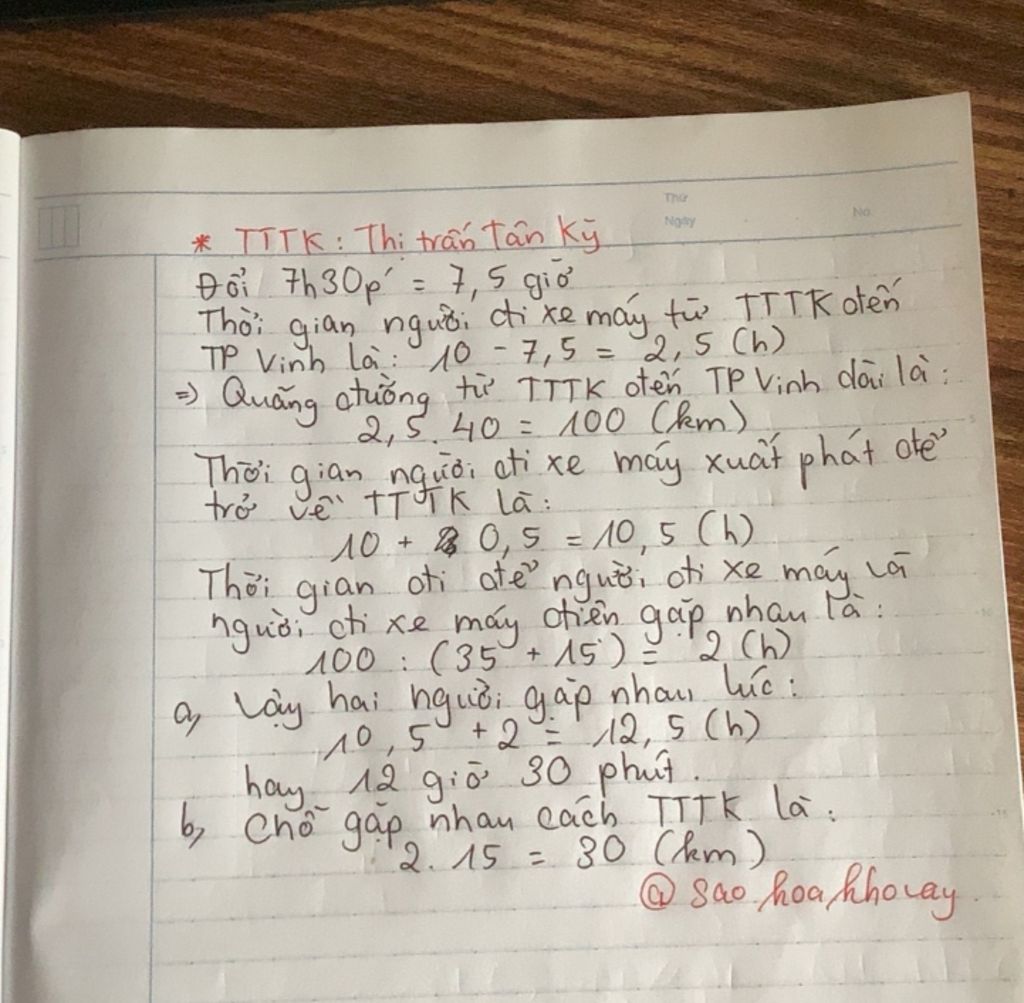 Thứ
Ngày
No.
* TTTK: Thị trấn Tân Kỳ
Đổi 7h30p' = 7,5 giờ
Thời gian người đi xe máy từ TTTK đến
TP Vinh là: 10 - 7,5 = 2,5 (h)
=> Quãng đường từ TTTK đến TP Vinh dài là:
2,5. 40 = 100 (km)
Thời gian người đi xe máy xuất phát để
trở về TTTK là:
10 + 0,5 = 10,5 (h)
Thời gian đi để người đi xe máy và
người đi xe máy điện gặp nhau là:
100 : (35 + 15) = 2 (h)
a, Vậy hai người gặp nhau lúc:
10,5 + 2 = 12,5 (h)
hay 12 giờ 30 phút.
b, Chỗ gặp nhau cách TTTK là:
2. 15 = 30 (km)
@sao.hoa,khocay